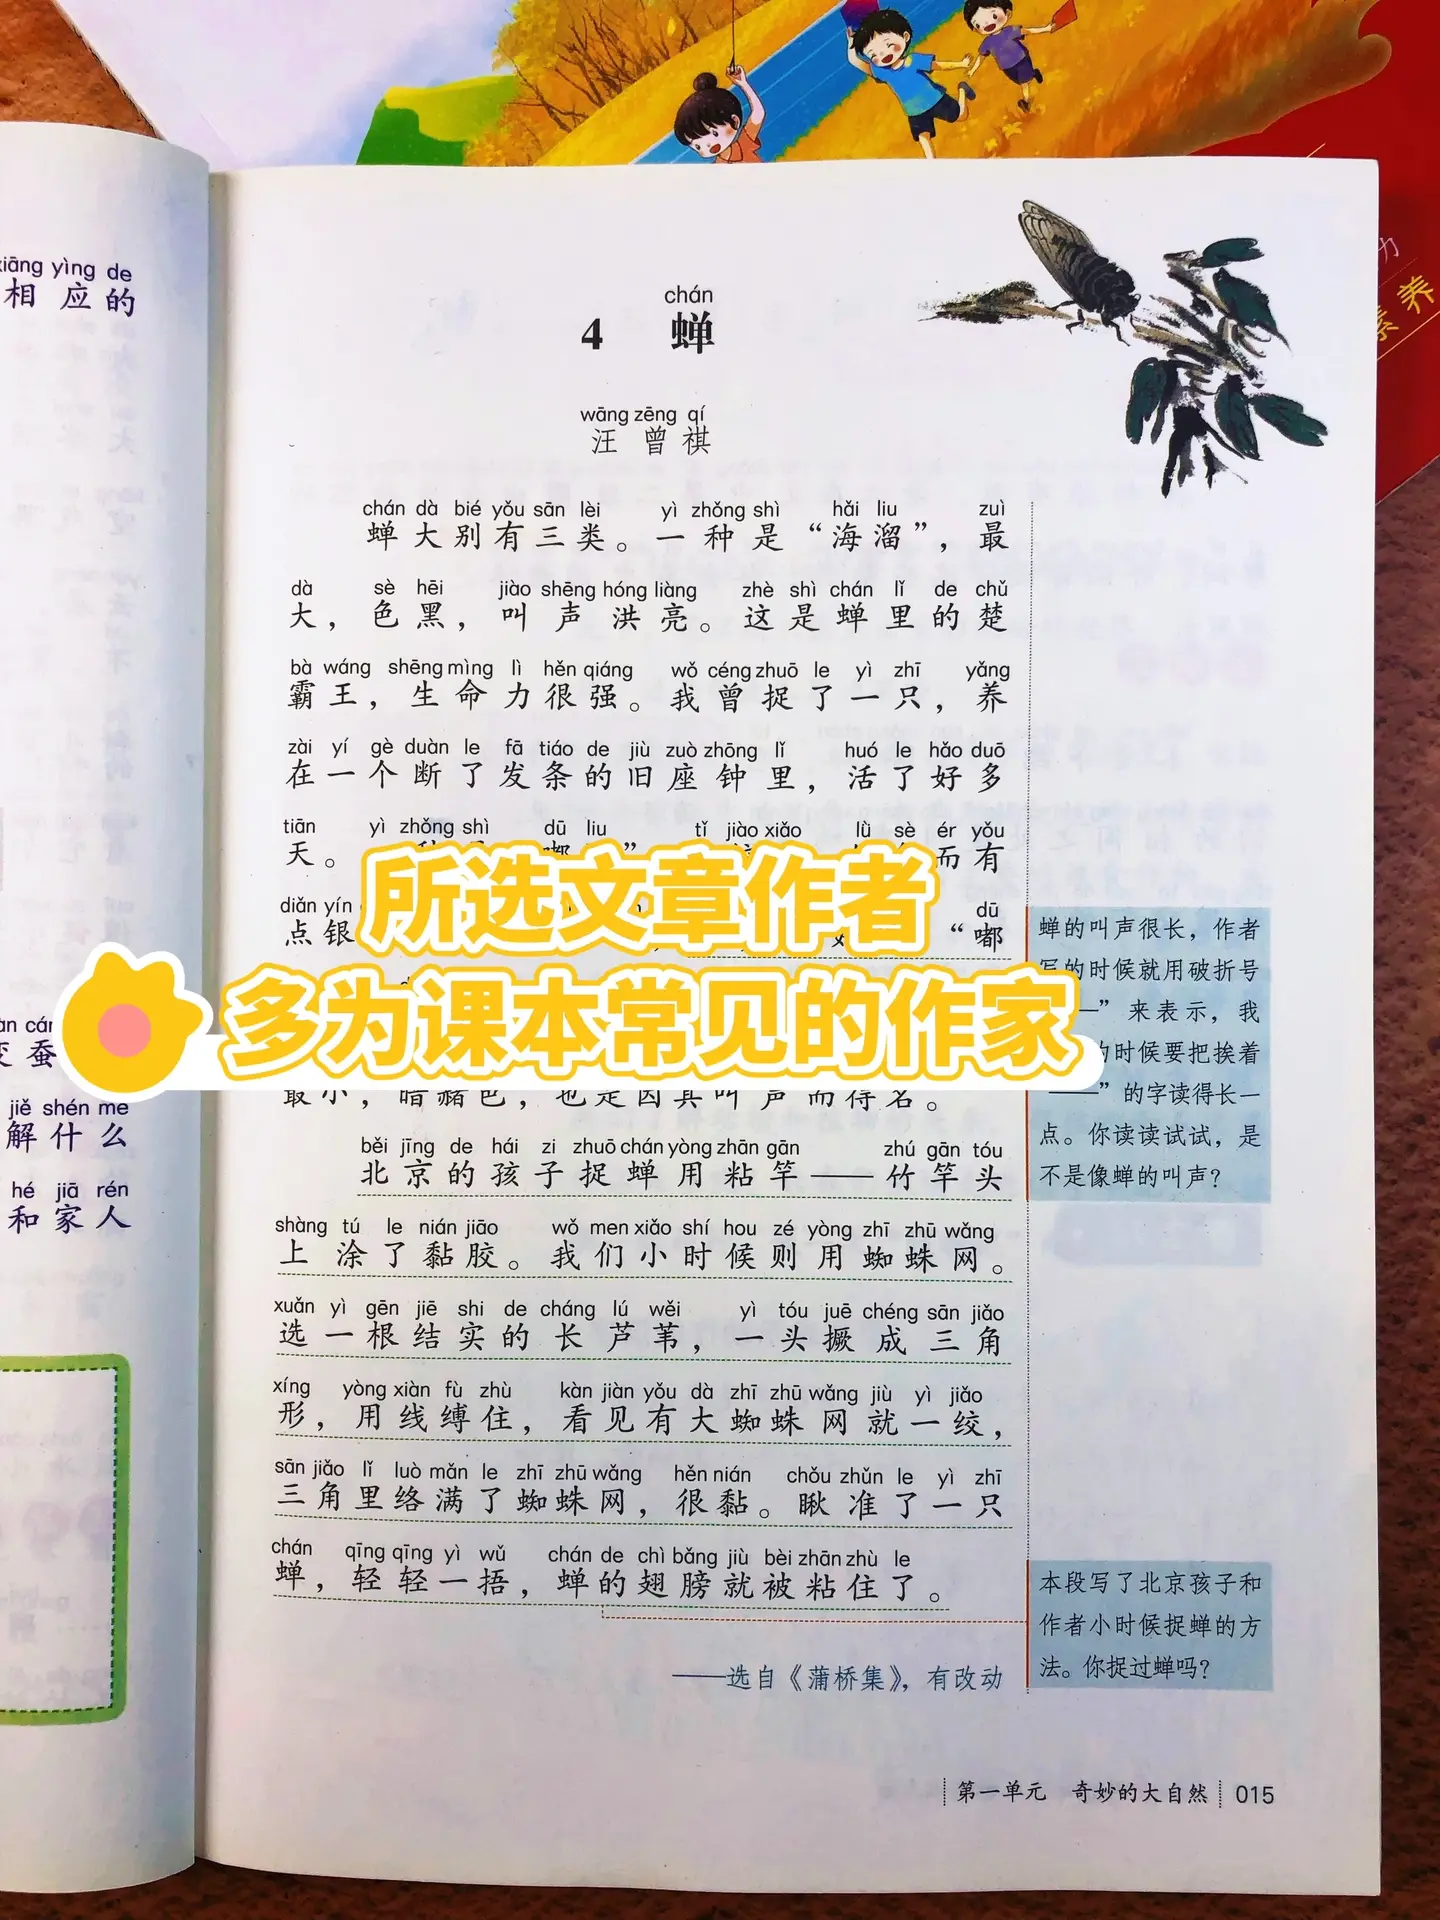 xiāng yìng de
相应的
jiě shén me
解什么
hé jiā rén
和家人
养
chán
4 蝉
wāng zēng qí
汪曾祺
chán dà bié yǒu sān lèi yì zhǒng shì hǎi liu zuì
蝉大别有三类。一种是“海溜”，最
dà sè hēi jiào shēng hóng liàng zhè shì chán lǐ de chǔ
大，色黑，叫声洪亮。这是蝉里的楚
bà wáng shēng mìng lì hěn qiáng wǒ céng zhuō le yì zhī yǎng
霸王，生命力很强。我曾捉了一只，养
zài yí gè duàn le fā tiáo de jiù zuò zhōng lǐ huó le hǎo duō
在一个断了发条的旧座钟里，活了好多
tiān yì zhǒng shì dū liu tǐ jiào xiǎo lǜ sè ér yǒu
天。 而有
diǎn yín dū
点银 “嘟
所选文章作者
多为课本常见的作家
最小，暗赭色，也是因其叫声而得名。
běi jīng de hái zi zhuō chán yòng zhān gān zhú gān tóu
北京的孩子捉蝉用粘竿——竹竿头
shàng tú le nián jiāo wǒ men xiǎo shí hou zé yòng zhī zhū wǎng
上涂了黏胶。我们小时候则用蜘蛛网。
xuǎn yì gēn jiē shi de cháng lú wěi yì tóu juē chéng sān jiǎo
选一根结实的长芦苇，一头撅成三角
xíng yòng xiàn fù zhù kàn jiàn yǒu dà zhī zhū wǎng jiù yì jiǎo
形，用线缚住，看见有大蜘蛛网就一绞，
sān jiǎo lǐ luò mǎn le zhī zhū wǎng hěn nián chǒu zhǔn le yì zhī
三角里络满了蜘蛛网，很黏。瞅准了一只
chán qīng qīng yì wǔ chán de chì bǎng jiù bèi zhān zhù le
蝉，轻轻一捂，蝉的翅膀就被粘住了。
——选自《蒲桥集》，有改动
蝉的叫声很长，作者
写的时候就用破折号
—”来表示，我
的时候要把挨着
——”的字读得长一
点。你读读试试，是
不是像蝉的叫声？
本段写了北京孩子和
作者小时候捉蝉的方
法。你捉过蝉吗？
第一单元 奇妙的大自然 015